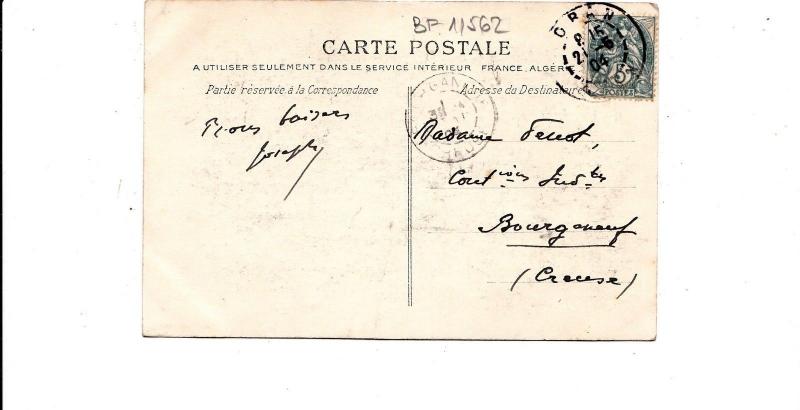 BF 11562
CARTE POSTALE
A UTILISER SEULEMENT DANS LE SERVICE INTÉRIEUR FRANCE, ALGÉR
Partie réservée à la Correspondance
Adresse du Destinataire
ORAN
5
POSTES
baisers
Joseph
Madame
Contions Indtes
Bourganeuf
(Creuse)